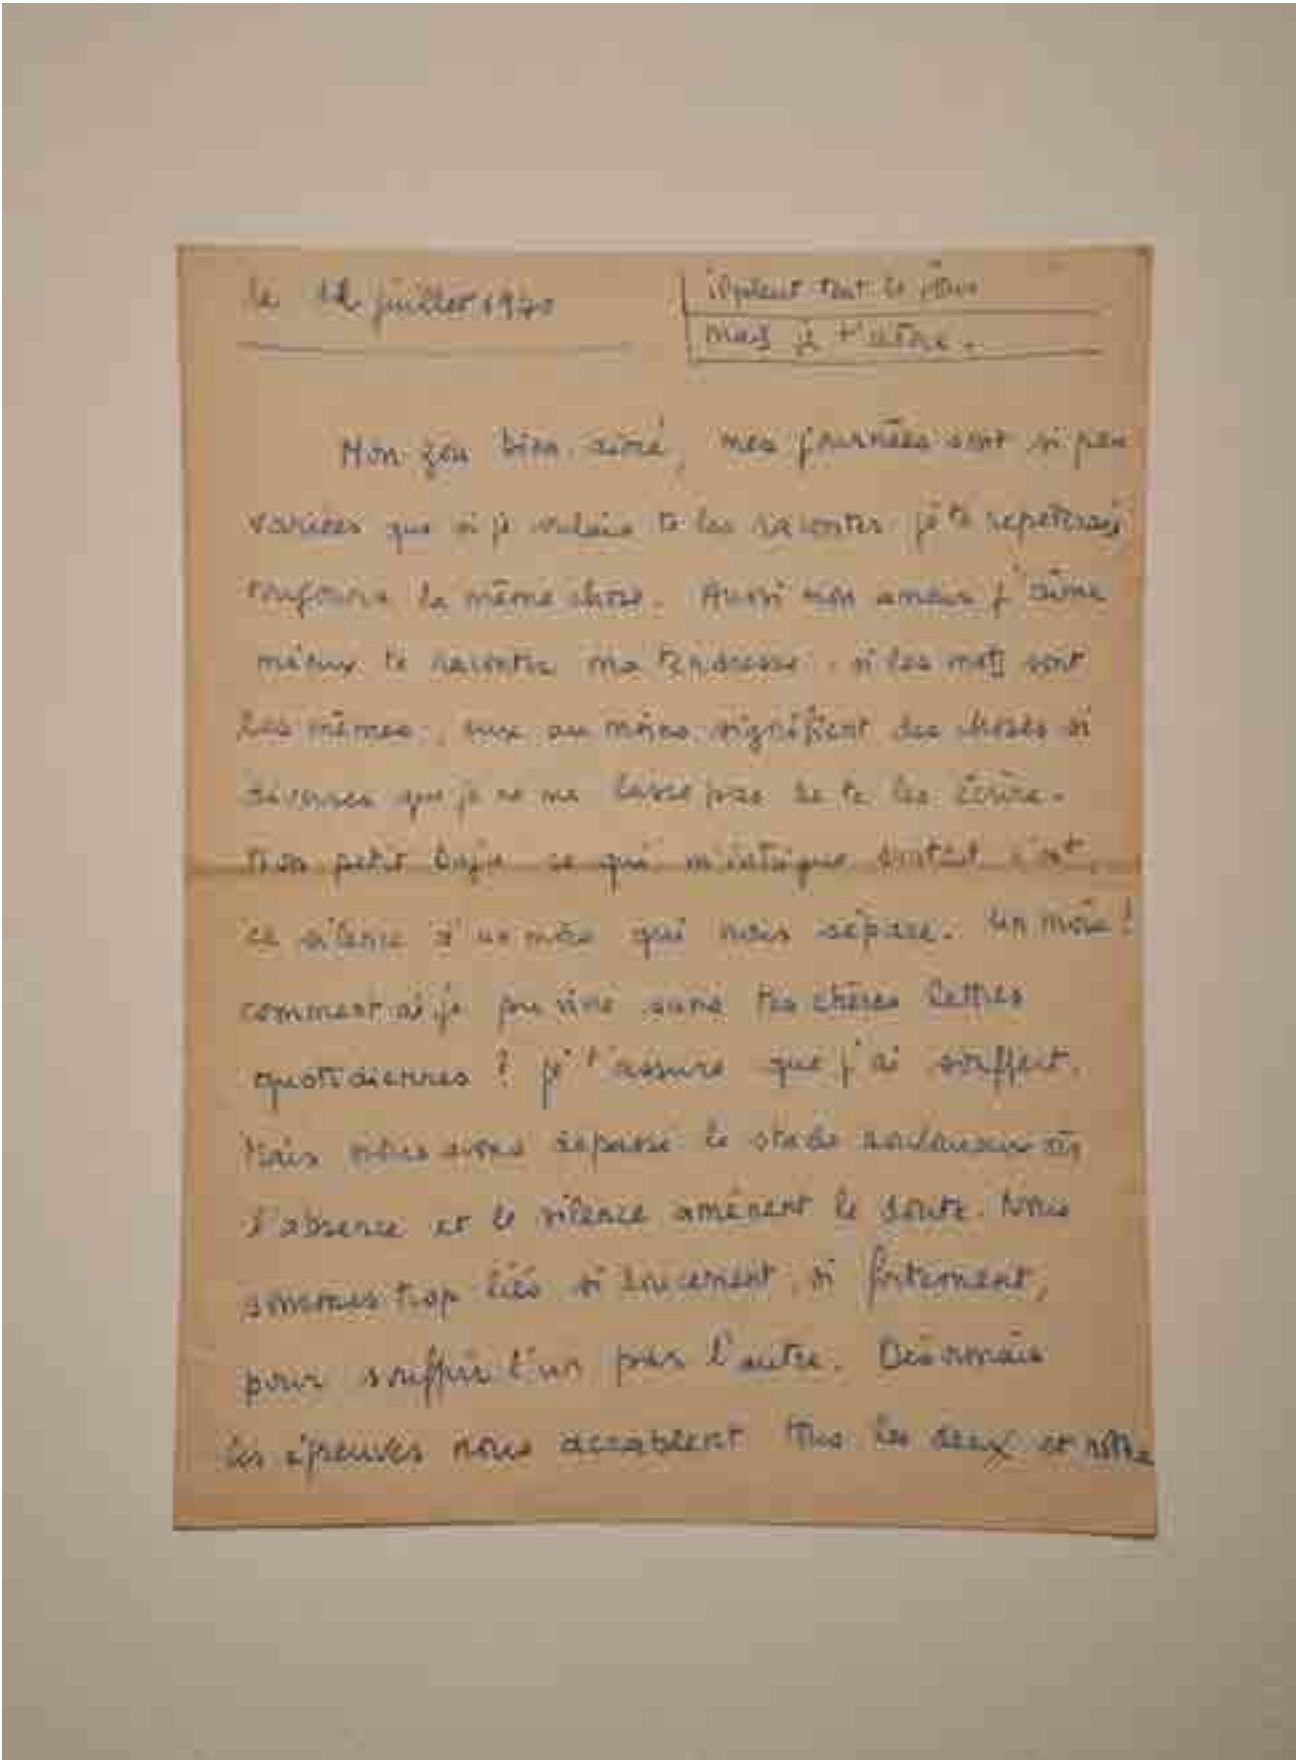 le 12 juillet 1940
il pleut tout le jour
mais je t'aime.
Mon zou bien aimé, mes journées sont si peu
variées que si je voulais te les raconter je te repeterais
toujours la même chose. Aussi mon amour j'aime
mieux te raconter ma tendresse. si les mots sont
les mêmes, eux au moins signifient des choses si
diverses que je ne me lasse pas de te les écrire.
Mon petit ce qui m'intrigue surtout c'est
ce silence d'un mois qui nous sépare. Un mois!
comment ai je pu vivre sans tes chères lettres
quotidiennes? je t'assure que j'ai souffert.
Mais nous avons dépassé le stade douloureux où
l'absence et le silence amènent le doute. Nous
sommes trop liés si doucement, si fortement,
pour souffrir l'un par l'autre. Désormais
les épreuves nous accablent tous les deux et notre